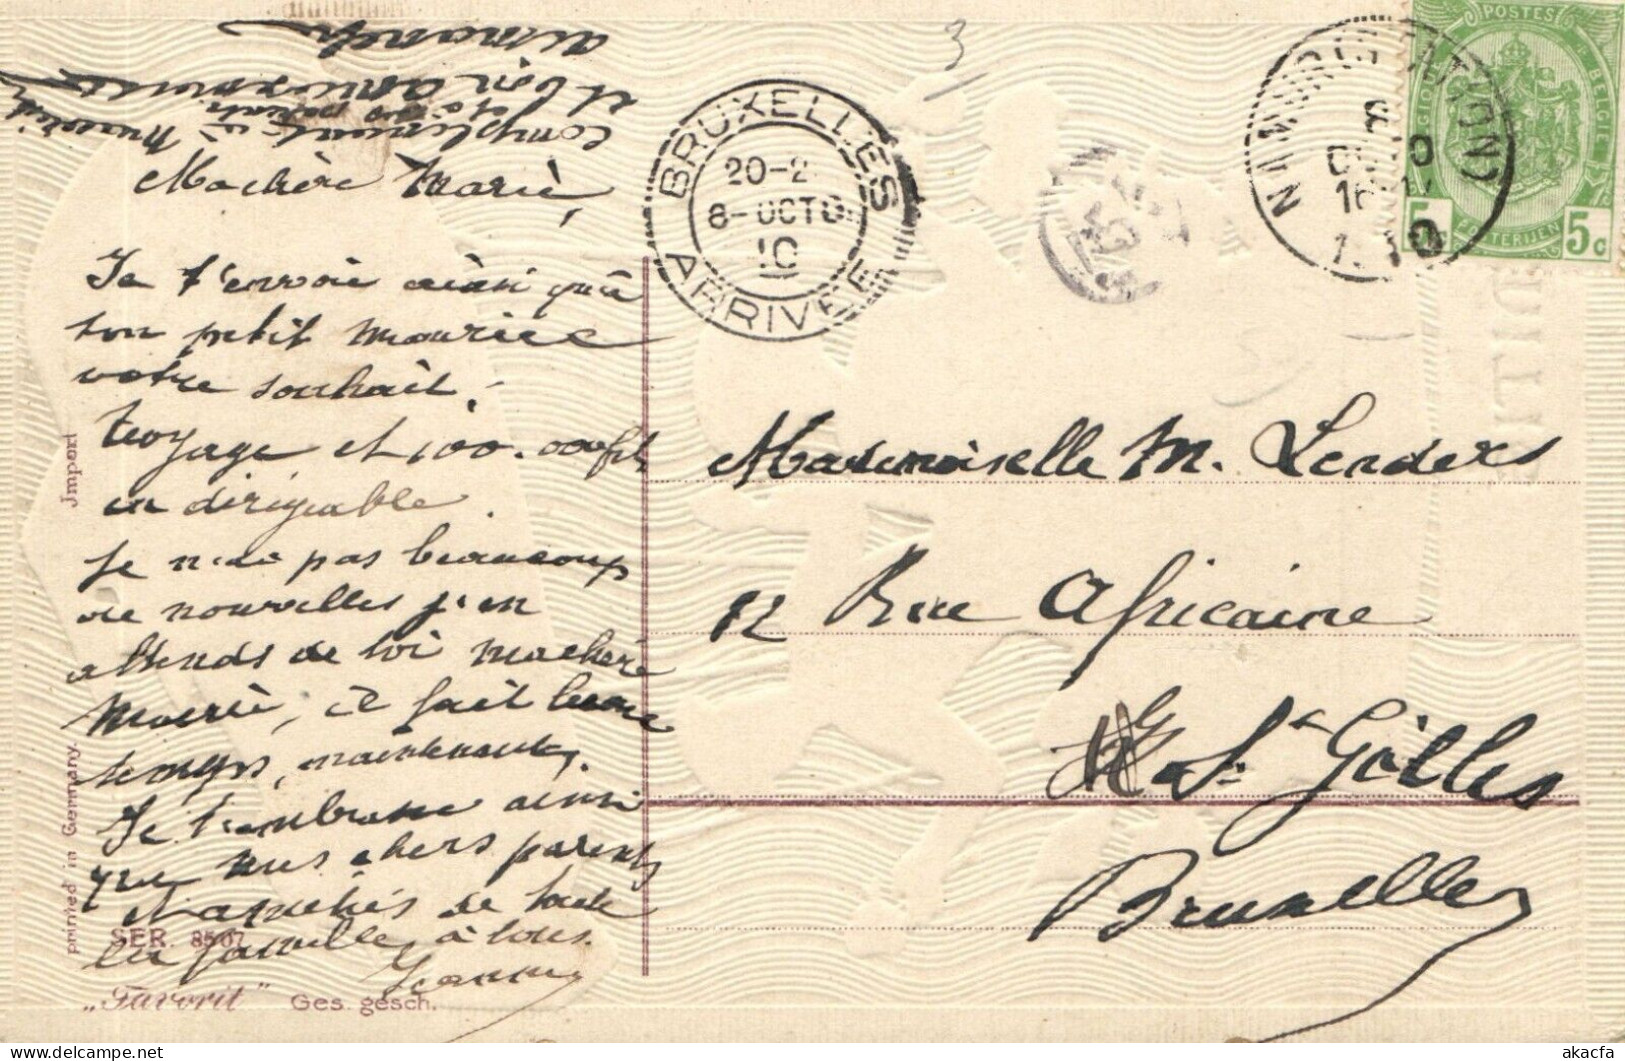 dimanche
et bon
compliments à Maurice
et à vos parents
Ma chère Marie,
Je t'envoie ainsi qu'à
ton petit Maurice
votre souhait.
voyage et 100.000 fr
en dirigeable.
Je n'ai pas beaucoup
de nouvelles j'en
attends de toi ma chère
Marie, il fait beau
temps, maintenant,
Je t'embrasse ainsi
que mes chers parents
et amitiés de toute
la famille à tous.
Jeanne
Import
printed in Germany.
SER. 8507
„Favorit" Ges. gesch.
3
BRUXELLES
20-2
8-OCTO
10
ARRIVEE
NAMUR (STATION)
8
1910
POSTES
BELGIQUE
BELGIE
POSTERIJEN
5c 5c
Mademoiselle M. Lenders
12 Rue Africaine
St Gilles
Bruxelles
akacfa